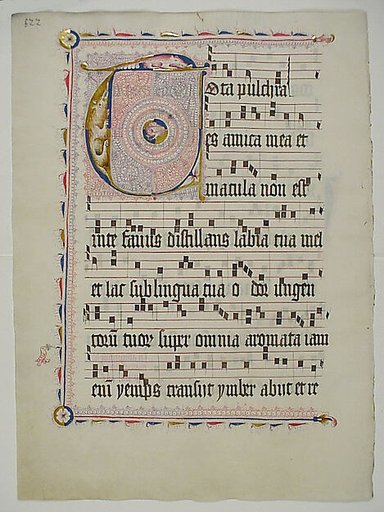 522
Tota pulchra
es amica mea et
macula non est
in te fauus distillans labia tua mel
et lac sub lingua tua odor ungen
torū tuoꝝ super omnia aromata iam
eni yemps transiit ymber abiit et re